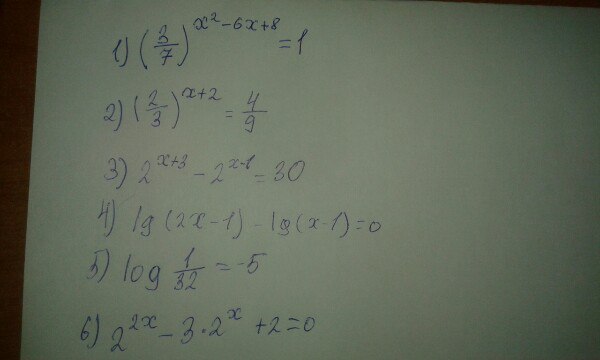 1) (3/7)^(x²-6x+8) = 1
2) (2/3)^(x+2) = 4/9
3) 2^(x+3) - 2^(x-1) = 30
4) lg(2x-1) - lg(x-1) = 0
5) log 1/32 = -5
6) 2^(2x) - 3·2^x + 2 = 0